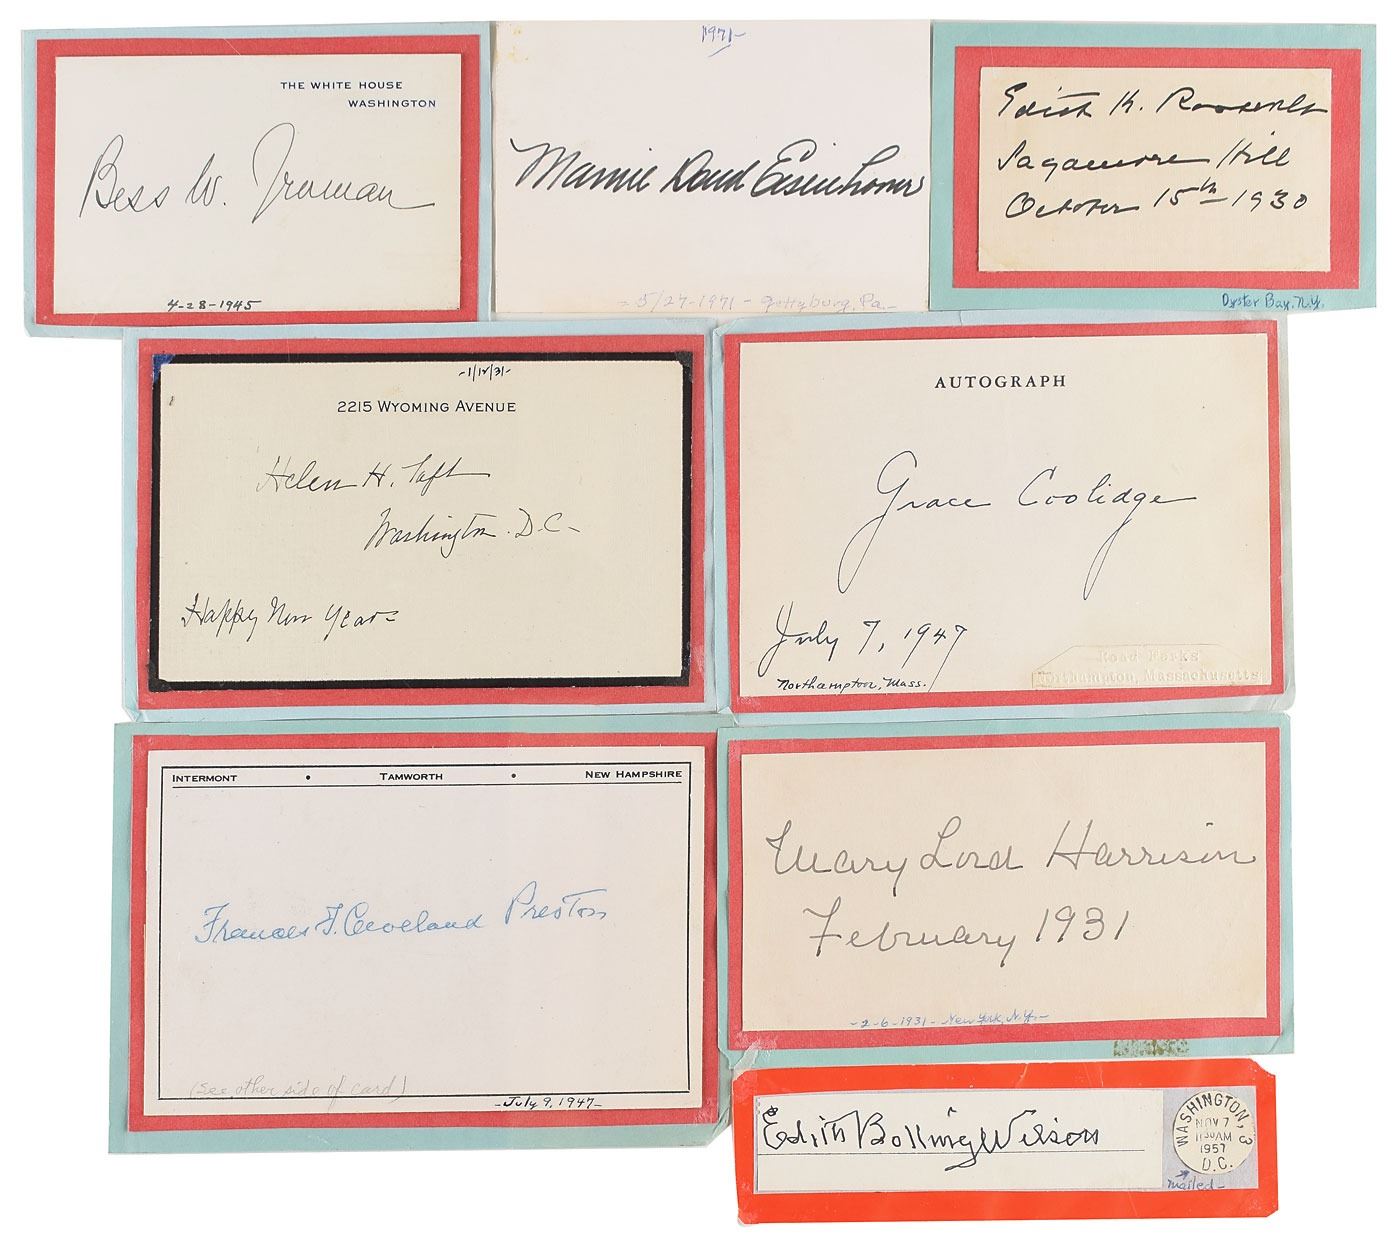 THE WHITE HOUSE
WASHINGTON
Bess W. Truman
4-28-1945
1971-
Mamie Doud Eisenhower
- 5/27-1971 - Gettyburg, Pa.-
Edith K. Roosevelt
Sagamore Hill
October 15th 1930
Oyster Bay, N.Y.
-1/12/31-
2215 WYOMING AVENUE
Helen H. Taft
Washington. D.C-
Happy New Year-
AUTOGRAPH
Grace Coolidge
July 7, 1947
Northampton, Mass.
Road Forks
Northampton, Massachusetts
INTERMONT • TAMWORTH • NEW HAMPSHIRE
Frances F. Cleveland Preston
(see other side of card)
-July 9, 1947-
Mary Lord Harrison
February 1931
-2-6-1931- New York, N.Y.-
Edith Bolling Wilson
WASHINGTON, 3
NOV 7
11 30 AM
1957
D.C.
mailed-